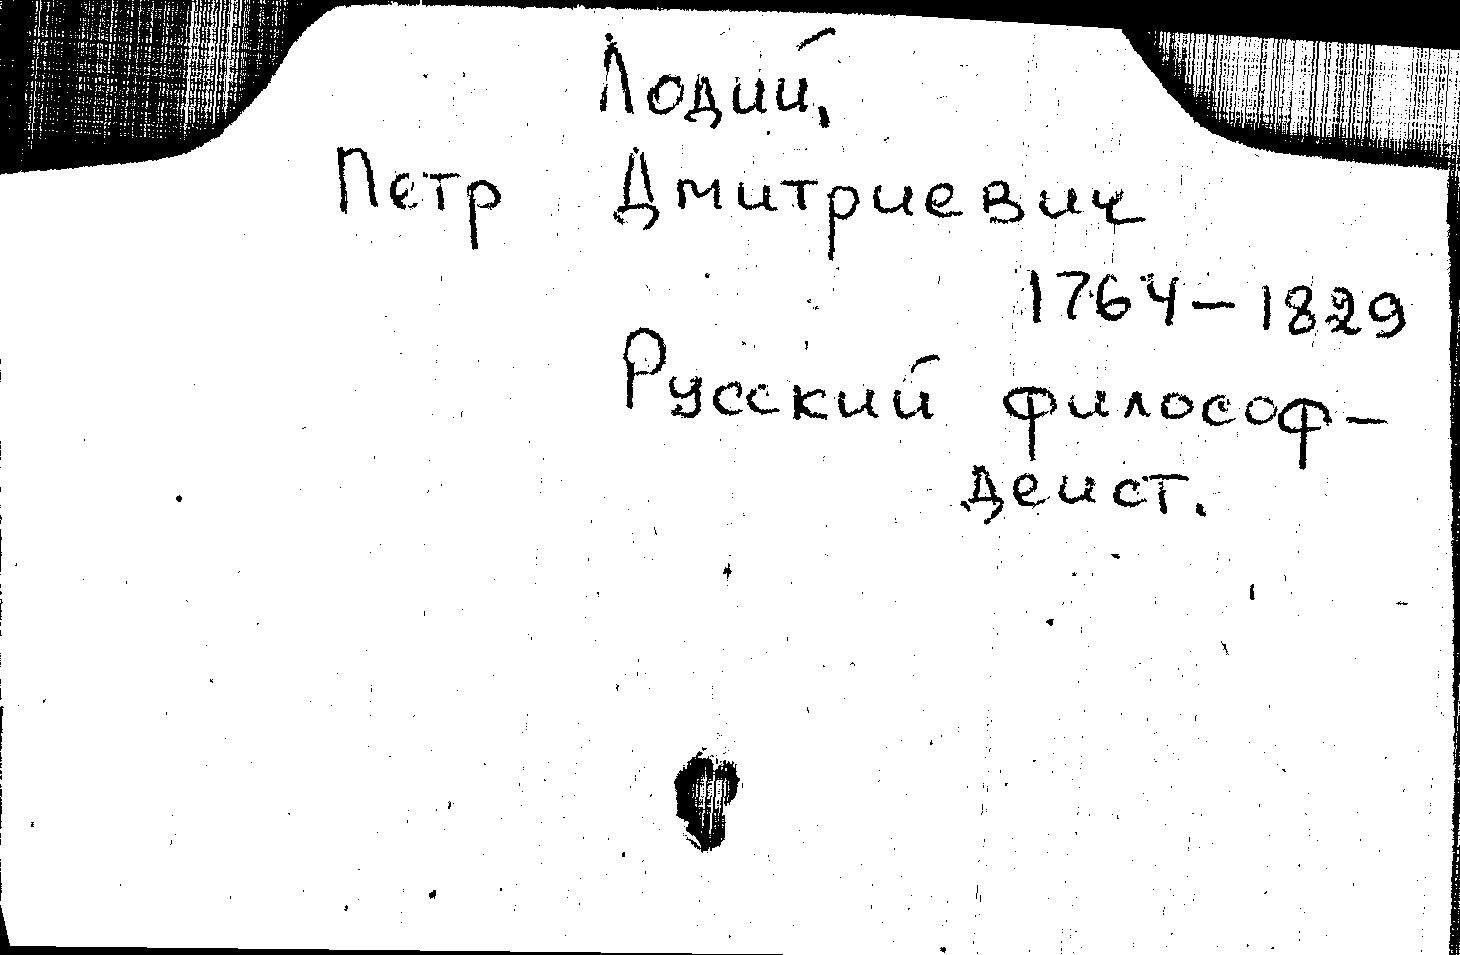 Лодий,
Петр Дмитриевич
1764-1829
Русский философ-
деист.